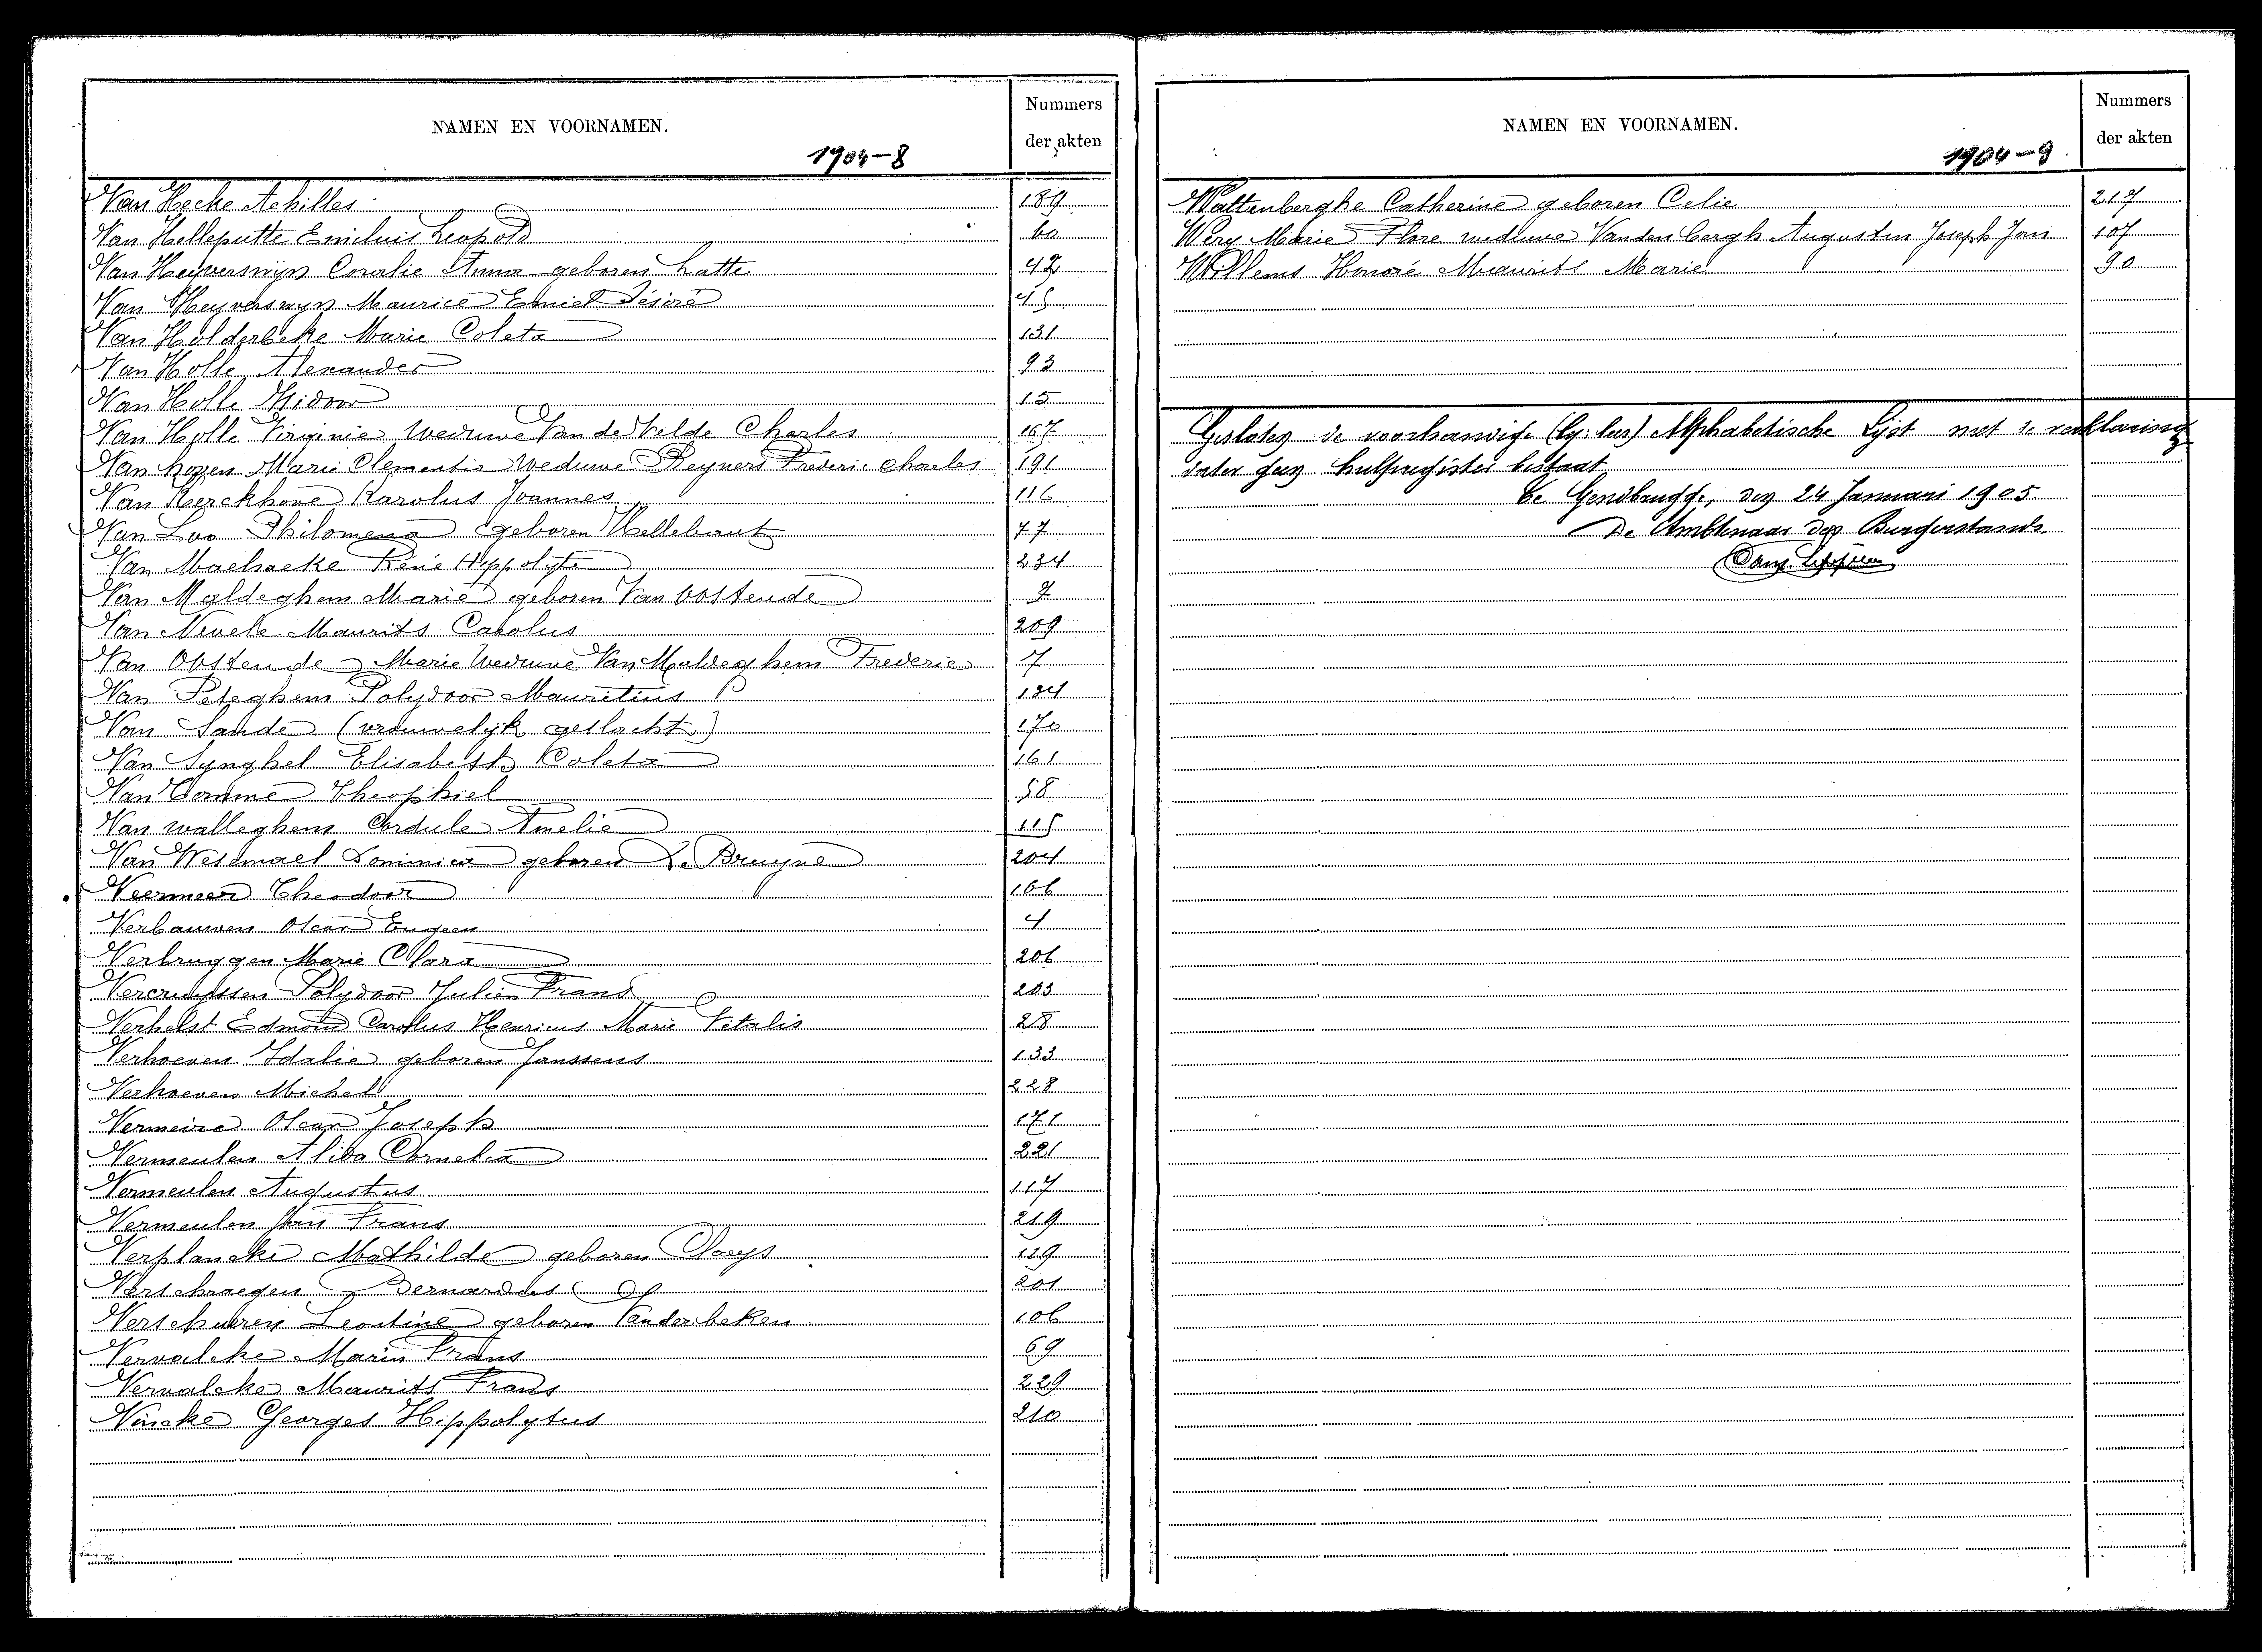 NAMEN EN VOORNAMEN.
Nummers
der akten
1904-8
Van Hecke Achilles 189
Van Helleputte Emeluis Leopold 60
Van Heyverswyn Coralie Anna geboren Latte 42
Van Heyverswyn Maurice Emiel Désiré 45
Van Holderbeke Marie Coleta 131
Van Holle Alexander 93
Van Holle Isidoor 15
Van Holle Virginie Weduwe Van de Velde Charles 167
Van hoyen Marie Clementia Weduwe Reyners Frederic Charles 191
Van Kerckhove Karolus Joannes 116
Van Loo Philomena geboren Hellebaut 77
Van Maelsaeke Réné Hippolyte 234
Van Maldeghem Marie geboren Van Oostende 7
Van Nevele Maurits Carolus 209
Van Oostende Marie Weduwe Van Maldeghem Frederic 7
Van Peteghem Polydoor Mauritius 124
Van Sande (vrouwelijk geslacht) 170
Van Synghel Elisabeth Coleta 161
Van Tomme Theophiel 58
Van walleghem Cordule Amelie 115
Van Wesemael Dominica geboren De Bruyne 204
Veermeer Theodoor 166
Verbauwen Oscar Eugeen 4
Verbruggen Marie Clara 206
Vercruyssen Polydoor Julien Frans 203
Verhelst Edmond Carolus Henricus Marie Vitalis 28
Verhoeven Idalie geboren Janssens 133
Verhoeven Michel 228
Vermeire Oscar Joseph 171
Vermeulen Alida Cornelia 221
Vermeulen Augustus 117
Vermeulen Jan Frans 219
Verplancke Mathilde geboren Claeys 129
Verschraegen Bernardus 201
Verschueren Leontine geboren Vanderbeken 106
Vervalcke Marin Frans 69
Vervalcke Maurits Frans 229
Vincke Georges Hippolytus 210
NAMEN EN VOORNAMEN.
Nummers
der akten
1904-9
Wattenberghe Catherine geboren Celie 217
Wery Marie Flore weduwe Vanden Bergh Augustin Joseph Jan 107
Willems Honoré Maurits Marie 90
Gesloten de voorhanwige Alphabetische Lijst met de verklaring
dater geen hulpregister bestaat
Te Gendbrugge, den 24 Januari 1905
De Ambtenaar des Burgerstands